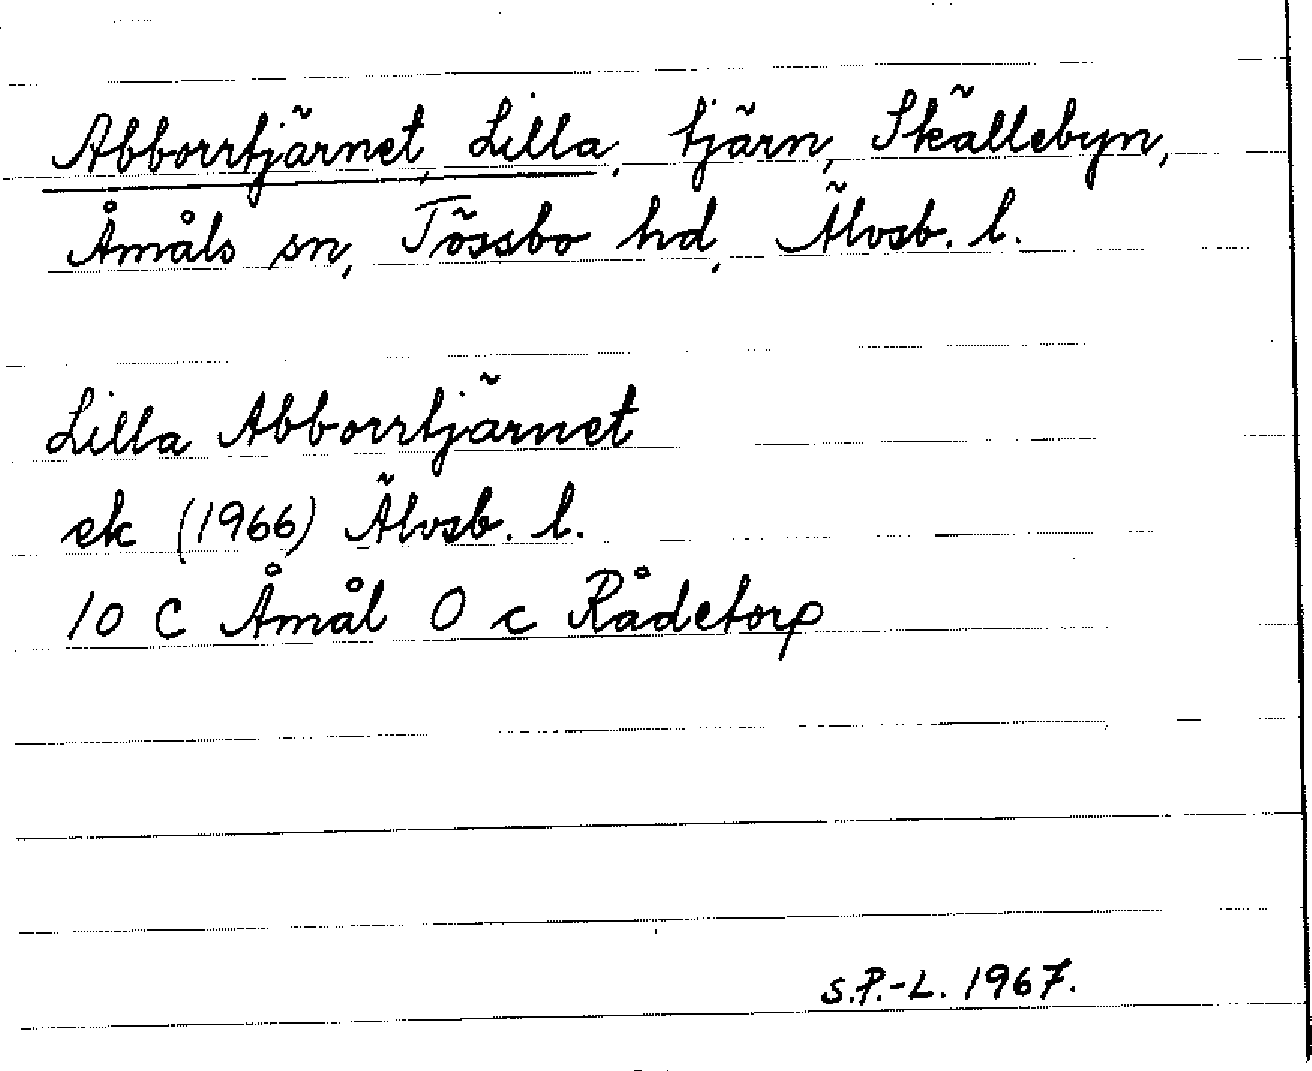 Abborrtjärnet, Lilla, tjärn, Skällebyn,
Åmåls sn, Tössbo hd, Älvsb. l.
Lilla Abborrtjärnet
ek (1966) Älvsb. l.
10 C Åmål 0 c Rådetorp
S.P.-L. 1967.